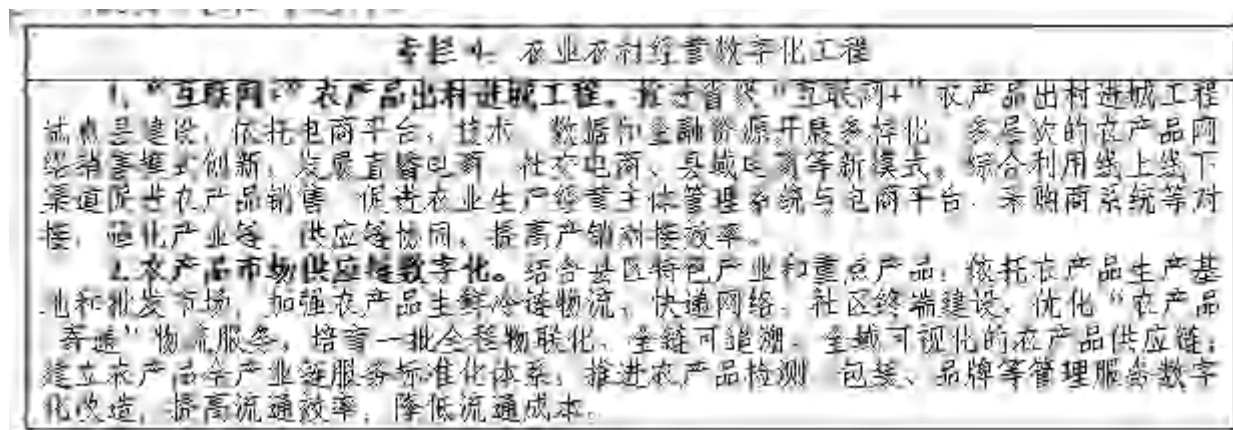 专栏 4 农业农村经营数字化工程
1. “互联网+”农产品出村进城工程。推进省级“互联网+”农产品出村进城工程
试点县建设，依托电商平台、技术、数据和金融资源开展多样化、多层次的农产品网
络销售模式创新，发展直播电商、社交电商、县域电商等新模式。综合利用线上线下
渠道促进农产品销售，促进农业生产经营主体管理系统与电商平台、采购商系统等对
接，强化产业链、供应链协同，提高产销对接效率。
2. 农产品市场供应链数字化。结合县区特色产业和重点产品，依托农产品生产基
地和批发市场，加强农产品生鲜冷链物流、快递网络、社区终端建设，优化“农产品
寄递”物流服务，培育一批全程物联化、全链可追溯、全域可视化的农产品供应链；
建立农产品全产业链服务标准化体系，推进农产品检测、包装、品牌等管理服务数字
化改造，提高流通效率，降低流通成本。